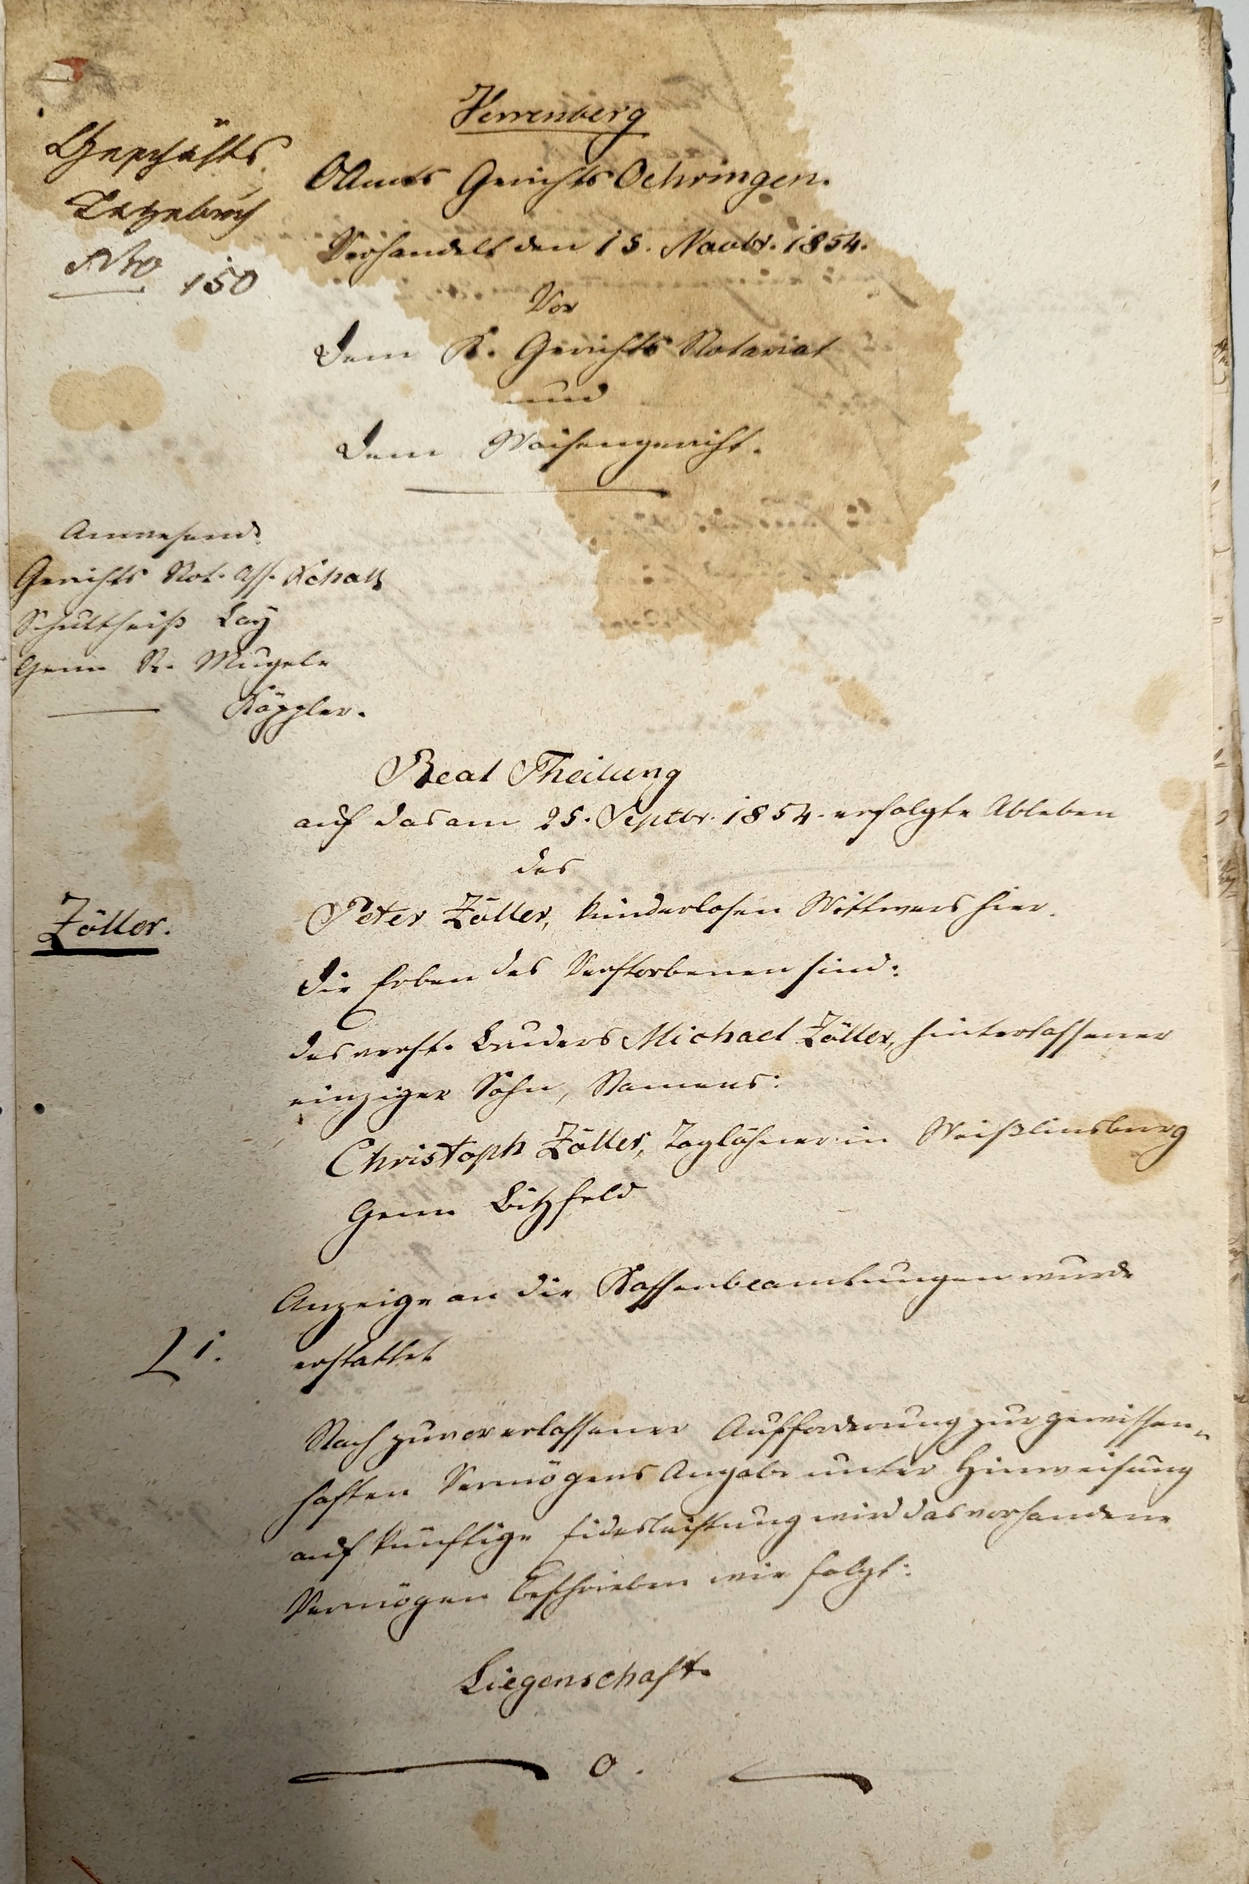 Geschäfts
Tagebuch
Nro 150
Verrenberg
OAmts Gerichts Oehringen.
Verhandelt den 15. Novbr. 1854.
Vor
dem K. Gerichts Notariat
und
dem Waisengericht.
Anwesend:
Gerichts Not. Ass. Schall
Schultheiß Lay
Gem R. Mugele
Käppler.
Real Theilung
auf das am 25. Septbr. 1854. erfolgte Ableben
des
Zöller.
Peter Zöller, kinderlosen Wittwers hier.
Die Erben des Verstorbenen sind:
des verst. Bruders Michael Zöller, hinterlassener
einziger Sohn, Namens:
Christoph Zöller, Taglöhner in Weißlinsburg
Gem Bitzfeld
Anzeige an die Kassenbeamtungen wurde
1. erstattet
Nach zuvor erlassener Aufforderung zur gewissen-
haften Vermögens Angabe unter Hinweisung
auf künftige Eidesleistung wird das vorhandene
Vermögen beschrieben wie folgt:
Liegenschaft.
0.